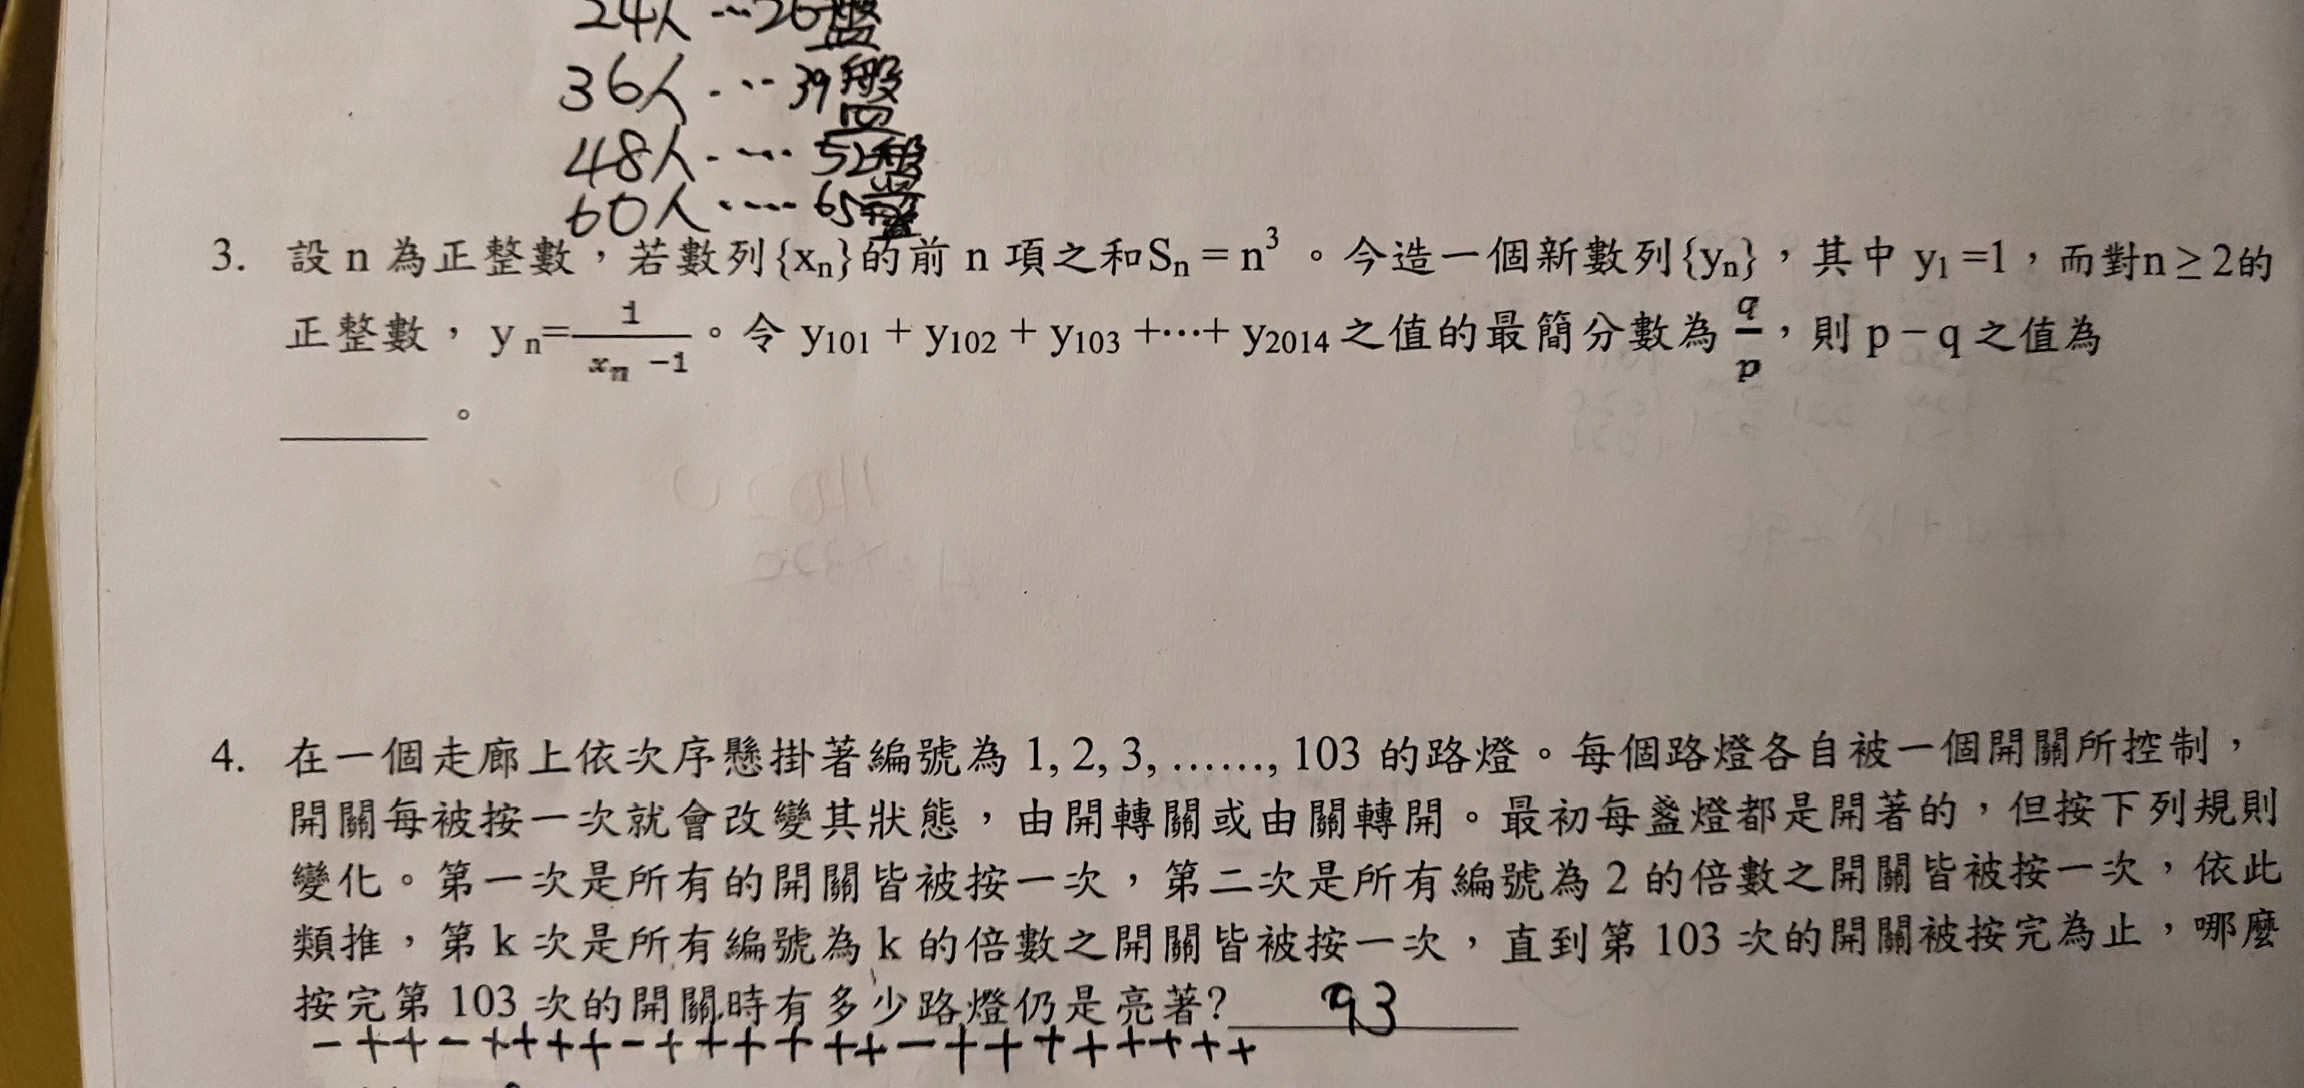 24人…26盤
36人…39盤
48人…52盤
60人…65盤
3. 設 n 為正整數，若數列{xₙ}的前 n 項之和Sₙ = n³ 。今造一個新數列{yₙ}，其中 y₁ =1，而對n ≥ 2的
正整數， y ₙ= 1/(xₙ −1) 。令 y₁₀₁ + y₁₀₂ + y₁₀₃ +⋯+ y₂₀₁₄ 之值的最簡分數為 q/p，則 p − q 之值為
______ 。
4. 在一個走廊上依次序懸掛著編號為 1, 2, 3, ……, 103 的路燈。每個路燈各自被一個開關所控制，
開關每被按一次就會改變其狀態，由開轉關或由關轉開。最初每盞燈都是開著的，但按下列規則
變化。第一次是所有的開關皆被按一次，第二次是所有編號為 2 的倍數之開關皆被按一次，依此
類推，第 k 次是所有編號為 k 的倍數之開關皆被按一次，直到第 103 次的開關被按完為止，哪麼
按完第 103 次的開關時有多少路燈仍是亮著? 93
－＋＋－＋＋＋＋－＋＋＋＋＋＋－＋＋＋＋＋＋＋＋